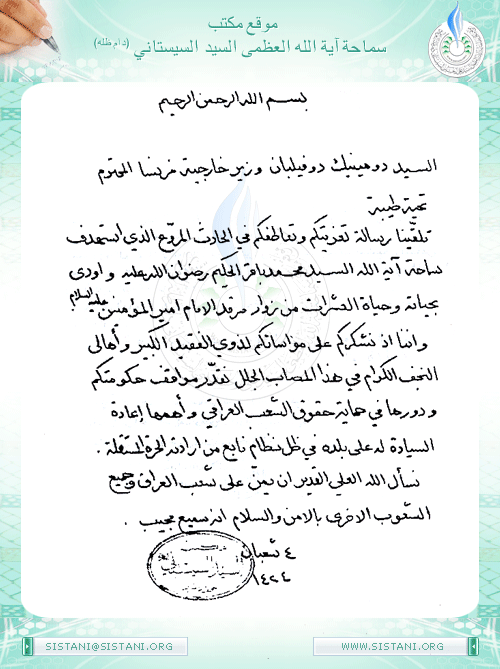 موقع مكتب
سماحة آية الله العظمى السيد السيستاني (دام ظله)
بسم الله الرحمن الرحيم
السيد دومينيك دوفيلبان وزير خارجية فرنسا المحترم
تحية طيبة
تلقينا رسالة تعزيتكم وتعاطفكم في الحادث المروّع الذي استهدف
سماحة آية الله السيد محمد باقر الحكيم رضوان الله عليه و اودى
بحياته وحياة العشرات من زوار مرقد الامام امير المؤمنين عليه السلام
واننا اذ نشكركم على مواساتكم لذوي الفقيد الكبير و أهالي
النجف الكرام في هذا المصاب الجلل نقدّر مواقف حكومتكم
و دورها في حماية حقوق الشعب العراقي و أهمها إعادة
السيادة له على بلده في ظل نظام نابع من ارادته الحرة المستقلة .
نسأل الله العلي القدير ان يمنّ على شعب العراق و جميع
الشعوب الاخرى بالامن والسلام انه سميع مجيب .
٤ شعبان
١٤٢٤
SISTANI@SISTANI.ORG
WWW.SISTANI.ORG